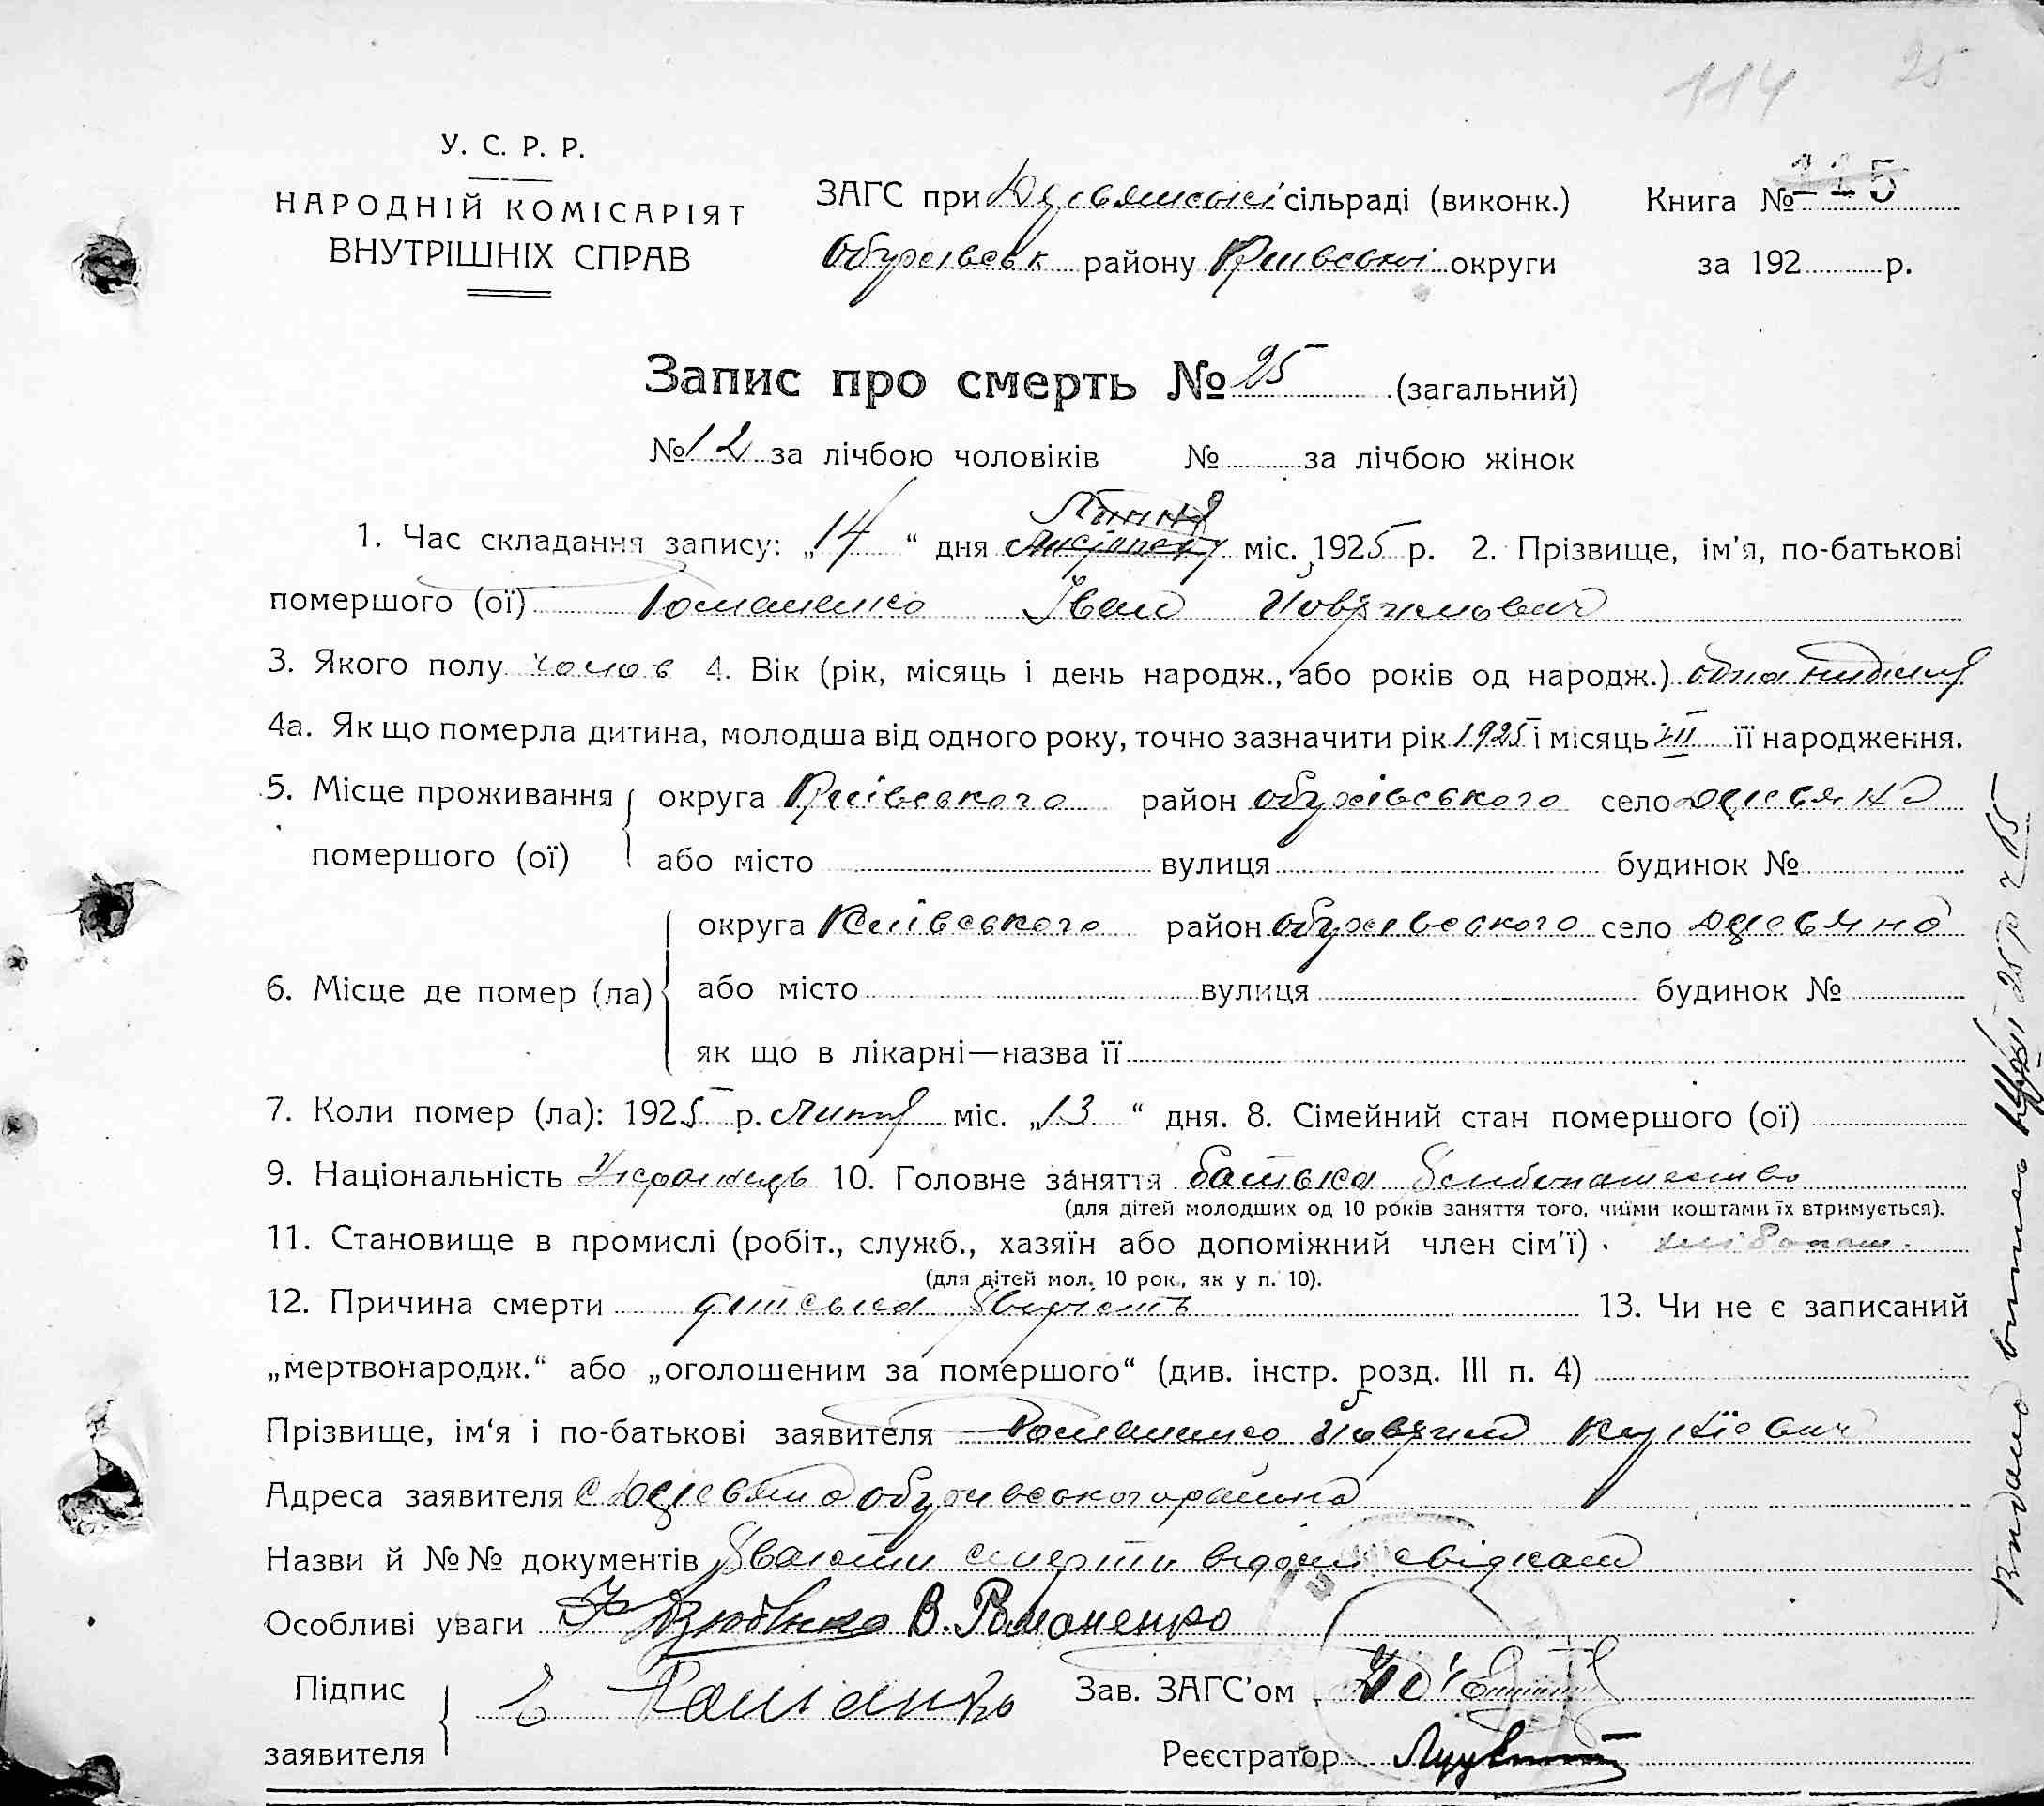 114 25
У. С. Р. Р.
НАРОДНІЙ КОМІСАРІЯТ
ВНУТРІШНІХ СПРАВ
ЗАГС при сільраді (виконк.)
Обухівськ району Київської округи
Книга № 115
за 192 р.
Запис про смерть № 25 (загальний)
№ 12 за лічбою чоловіків № за лічбою жінок
Липня
1. Час складання запису: „14“ дня міс. 1925 р. 2. Прізвище, ім'я, по-батькові
помершого (ої) Романенко Іван
3. Якого полу чолов 4. Вік (рік, місяць і день народж., або років од народж.) одна неділя
4а. Як що померла дитина, молодша від одного року, точно зазначити рік 1925 і місяць VII її народження.
5. Місце проживання помершого (ої) { округа Київського район обухівського село
або місто вулиця будинок №
6. Місце де помер (ла) { округа Київського район обухівського село
або місто вулиця будинок №
як що в лікарні—назва її
7. Коли помер (ла): 1925 р. липня міс. „13“ дня. 8. Сімейний стан помершого (ої)
9. Національність Українець 10. Головне заняття батька
(для дітей молодших од 10 років заняття того, чиїми коштами їх втримується).
11. Становище в промислі (робіт., служб., хазяїн або допоміжний член сім'ї) хлібопаш.
(для дітей мол. 10 рок., як у п. 10).
12. Причина смерти дитська 13. Чи не є записаний
„мертвонародж.“ або „оголошеним за помершого“ (див. інстр. розд. III п. 4)
Прізвище, ім'я і по-батькові заявителя Романенко
Адреса заявителя с обухівського района
Назви й №№ документів смерти
Особливі уваги В. Романенко
Підпис заявителя { Є Романенко
Зав. ЗАГС'ом
Реєстратор
Видано